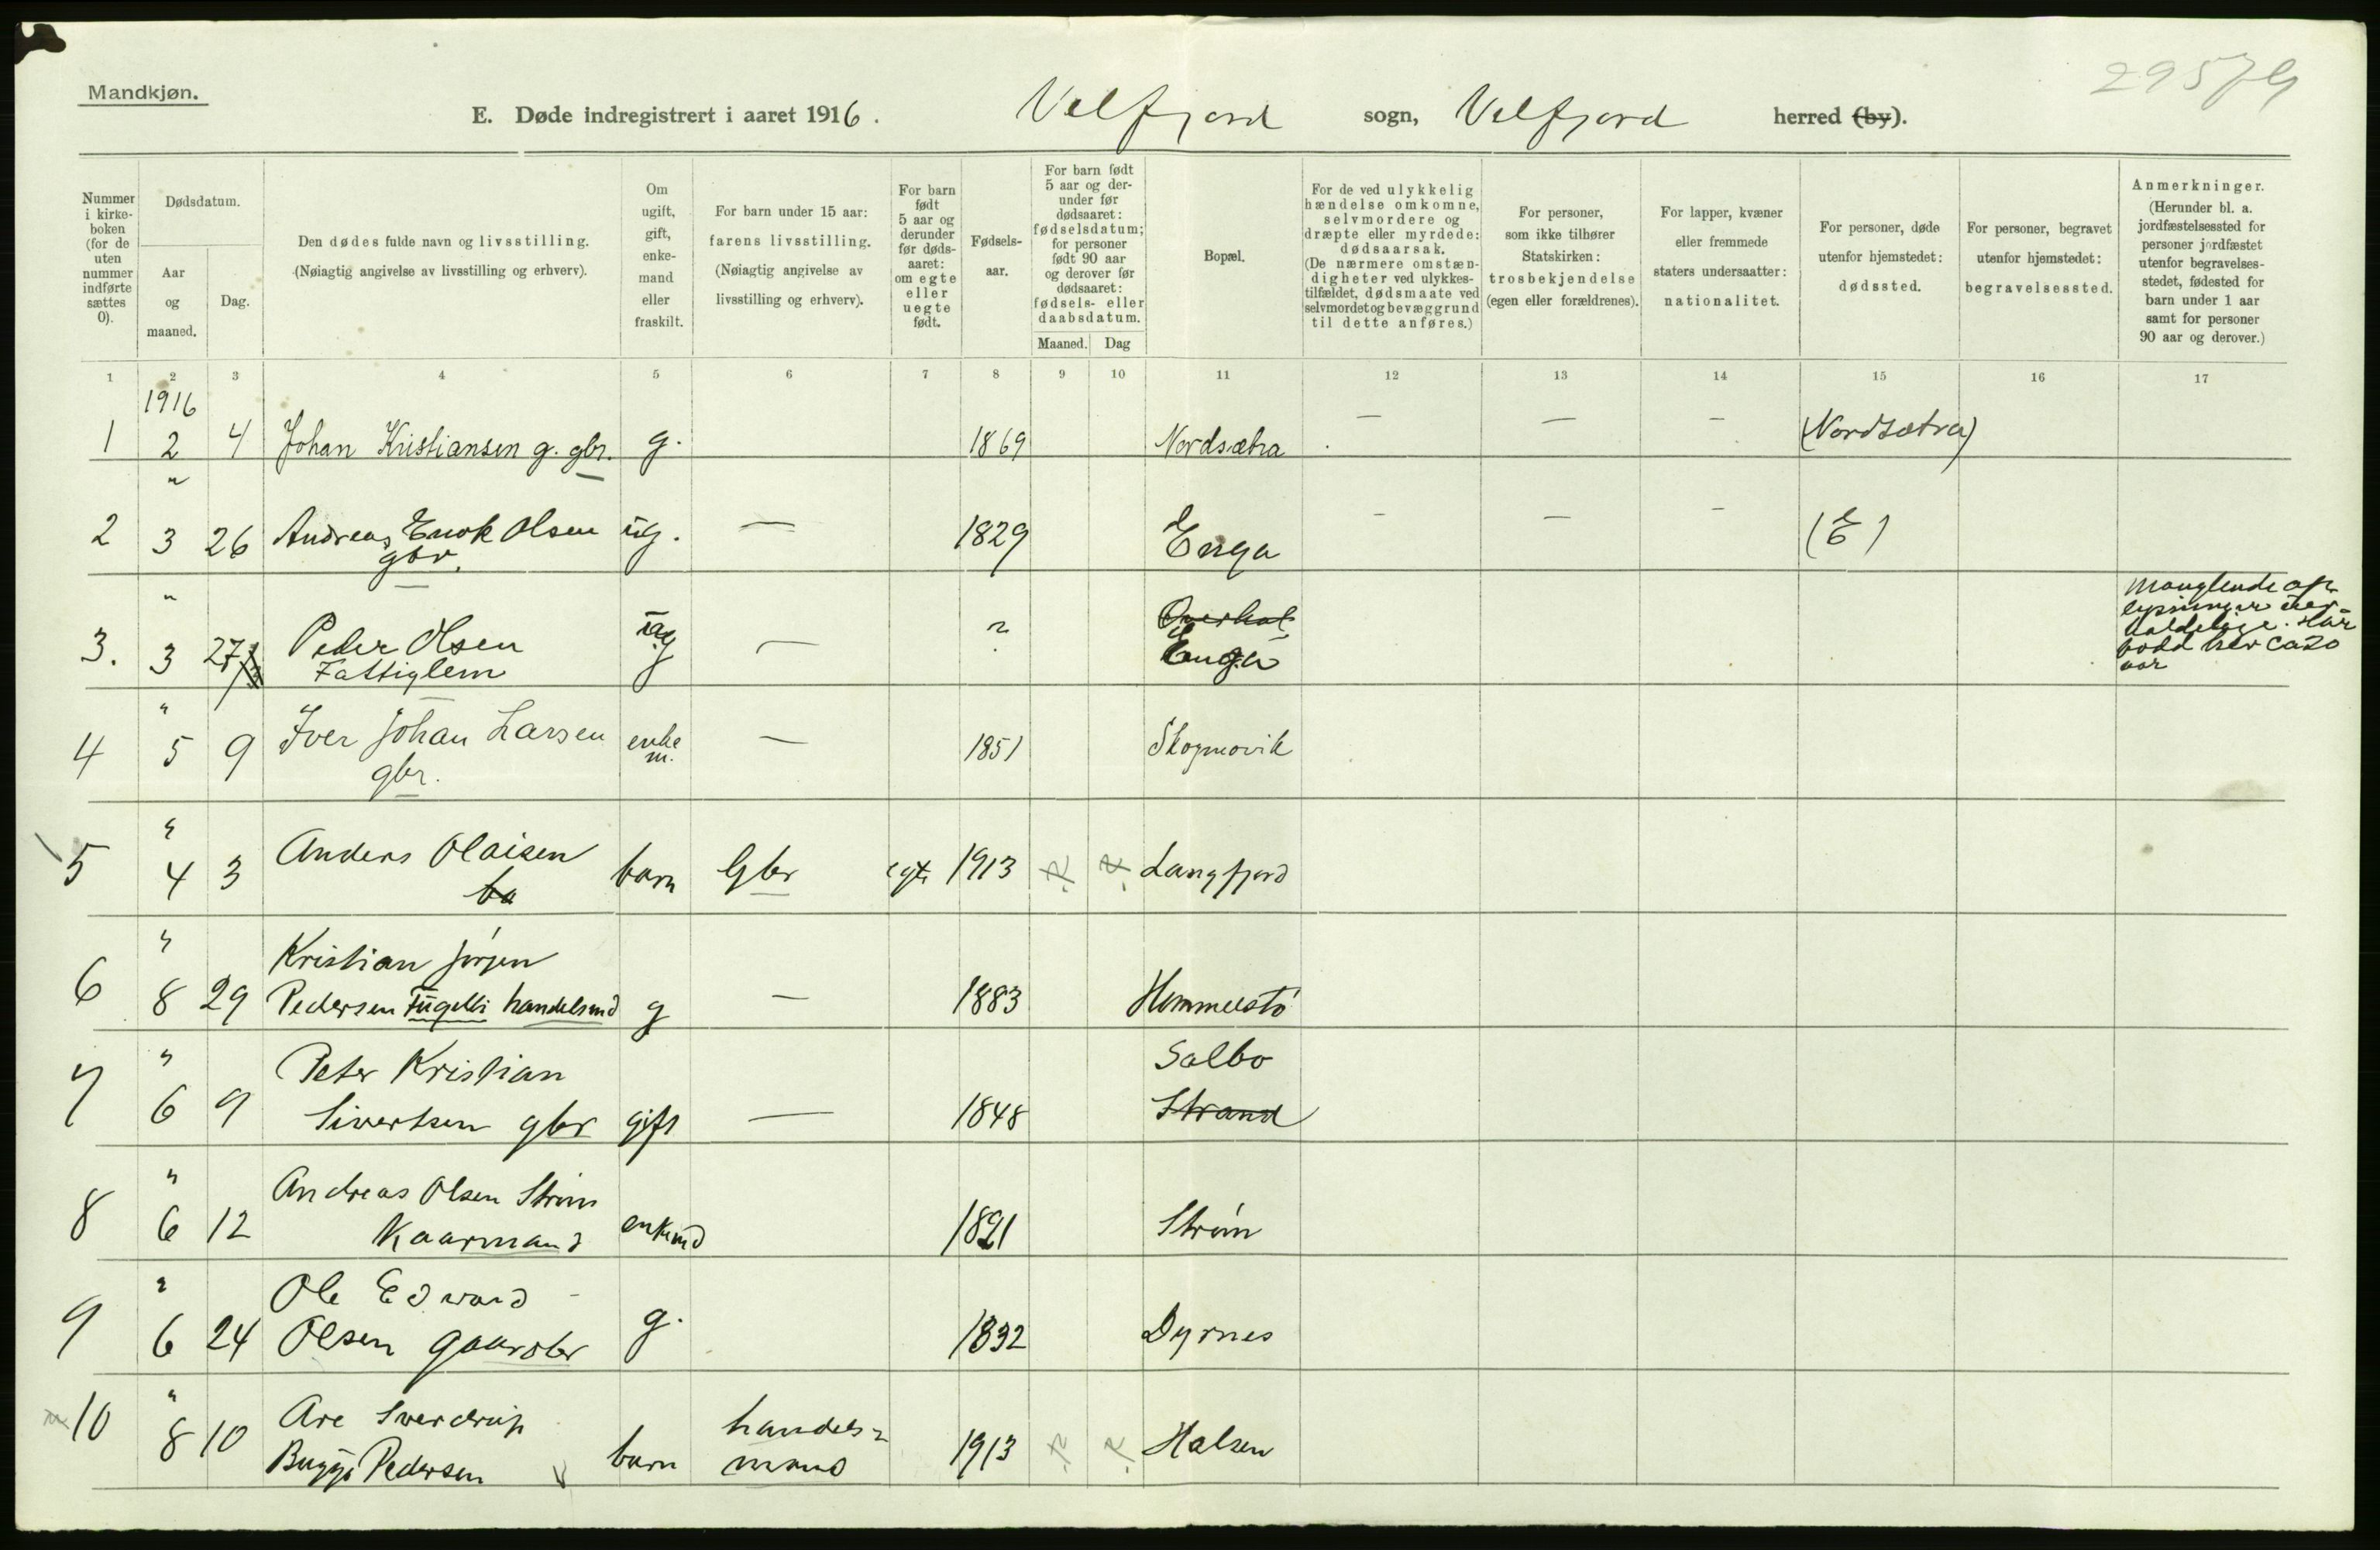 Mandkjøn.
29579
E. Døde indregistrert i aaret 1916. Velfjord sogn, Velfjord herred (by).
Nummer i kirke-boken (for de uten nummer indførte sættes 0).
Dødsdatum.
Aar og maaned.
Dag.
Den dødes fulde navn og livsstilling.
(Nøiagtig angivelse av livsstilling og erhverv).
Om ugift, gift, enke-mand eller fraskilt.
For barn under 15 aar: farens livsstilling.
(Nøiagtig angivelse av livsstilling og erhverv).
For barn født 5 aar og derunder før døds-aaret: om egte eller uegte født.
Fødsels-aar.
For barn født 5 aar og der-under før dødsaaret: fødselsdatum; for personer født 90 aar og derover før dødsaaret: fødsels- eller daabsdatum.
Maaned. Dag
Bopæl.
For de ved ulykkelig hændelse omkomne, selvmordere og dræpte eller myrdede: dødsaarsak.
(De nærmere omstæn-digheter ved ulykkes-tilfældet, dødsmaate ved selvmordet og bevæggrund til dette anføres.)
For personer, som ikke tilhører Statskirken: trosbekjendelse (egen eller forældrenes).
For lapper, kvæner eller fremmede staters undersaatter: nationalitet.
For personer, døde utenfor hjemstedet: dødssted.
For personer, begravet utenfor hjemstedet: begravelsessted.
Anmerkninger.
(Herunder bl. a. jordfæstelsessted for personer jordfæstet utenfor begravelses-stedet, fødested for barn under 1 aar samt for personer 90 aar og derover.)
1 2 3 4 5 6 7 8 9 10 11 12 13 14 15 16 17
1916
1 2 4 Johan Kristiansen g. gbr. g. 1869 Nordsætra — — — (Nordsætra)
"
2 3 26 Andreas Enok Olsen ug. — 1829 Enga — — — (E)
gbr.
"
3. 3 27 Peder Olsen ug — ? Enga
Fattiglem
Manglende op-
lysninger
bodd her ca 20
aar
"
4 5 9 Iver Johan Larsen enke — 1851 Skogmovik
gbr. m.
"
5 4 3 Anders Olaisen barn Gbr egte 1913 ? ? Langfjord
ba
"
Kristian Jørgen
6 8 29 Pedersen Fugelli handelsmd g — 1883 Hommelstø
"
Peter Kristian Salbo
7 6 9 Sivertsen gbr gift — 1848 Strand
"
Andreas Olsen Strøm
8 6 12 Kaarmand enkemd 1821 Strøm
"
Ole Edward
9 6 24 Olsen gaardbr g. 1832 Dyrnes
"
Are Sverdrup handels-
10 8 10 Bugge Pedersen barn mand 1913 ? ? Halsen